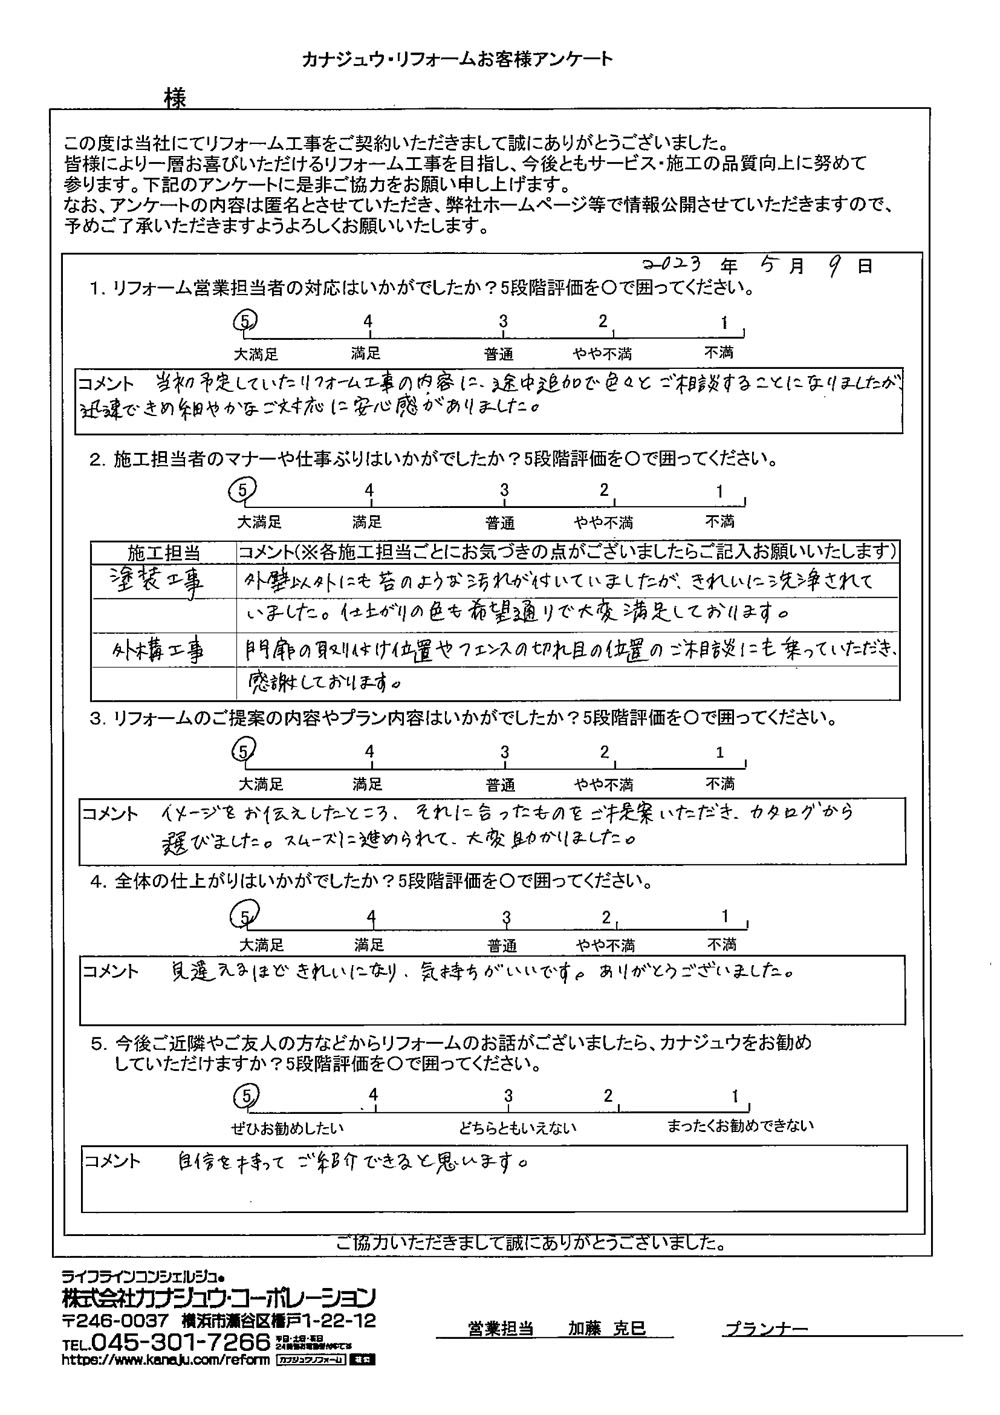 カナジュウ・リフォームお客様アンケート
様
この度は当社にてリフォーム工事をご契約いただきまして誠にありがとうございました。
皆様により一層お喜びいただけるリフォーム工事を目指し、今後ともサービス・施工の品質向上に努めて
参ります。下記のアンケートに是非ご協力をお願い申し上げます。
なお、アンケートの内容は匿名とさせていただき、弊社ホームページ等で情報公開させていただきますので、
予めご了承いただきますようよろしくお願いいたします。
2023 年 5 月 9 日
1. リフォーム営業担当者の対応はいかがでしたか？5段階評価を〇で囲ってください。
5 4 3 2 1
大満足 満足 普通 やや不満 不満
コメント 当初予定していたリフォーム工事の内容に、途中追加で色々とご相談することになりましたが
迅速できめ細やかなご対応に安心感がありました。
2. 施工担当者のマナーや仕事ぶりはいかがでしたか？5段階評価を〇で囲ってください。
5 4 3 2 1
大満足 満足 普通 やや不満 不満
施工担当 コメント(※各施工担当ごとにお気づきの点がございましたらご記入お願いいたします)
塗装工事 外壁以外にも苔のような汚れが付いていましたが、きれいに洗浄されて
いました。仕上がりの色も希望通りで大変満足しております。
外構工事 門扉の取り付け位置やフェンスの切れ目の位置のご相談にも乗っていただき、
感謝しております。
3. リフォームのご提案の内容やプラン内容はいかがでしたか？5段階評価を〇で囲ってください。
5 4 3 2 1
大満足 満足 普通 やや不満 不満
コメント イメージをお伝えしたところ、それに合ったものをご提案いただき、カタログから
選びました。スムーズに進められて、大変助かりました。
4. 全体の仕上がりはいかがでしたか？5段階評価を〇で囲ってください。
5 4 3 2 1
大満足 満足 普通 やや不満 不満
コメント 見違えるほどきれいになり、気持ちがいいです。ありがとうございました。
5. 今後ご近隣やご友人の方などからリフォームのお話がございましたら、カナジュウをお勧め
していただけますか？5段階評価を〇で囲ってください。
5 4 3 2 1
ぜひお勧めしたい どちらともいえない まったくお勧めできない
コメント 自信を持ってご紹介できると思います。
ご協力いただきまして誠にありがとうございました。
ライフラインコンシェルジュ。
株式会社カナジュウ・コーポレーション
〒246-0037 横浜市瀬谷区橋戸1-22-12
TEL.045-301-7266
https://www.kanaju.com/reform カナジュウリフォーム 検索
営業担当 加藤 克巳 プランナー